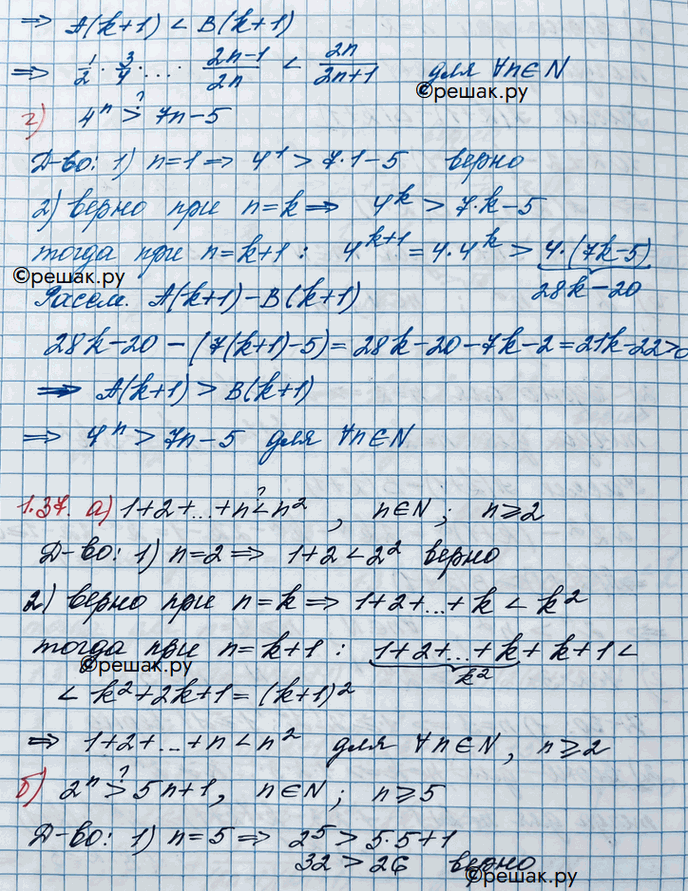 ⇒ A(k+1) < B(k+1)
⇒ 1/2 · 3/4 · ... · (2n-1)/2n < 2n/(2n+1) для ∀n∈N
©решак.ру
г) 4ⁿ >? 7n-5
Д-во: 1) n=1 ⇒ 4¹ > 7·1-5 верно
2) верно при n=k ⇒ 4ᵏ > 7·k-5
тогда при n=k+1 : 4ᵏ⁺¹ = 4·4ᵏ > 4·(7k-5)
28k-20
©решак.ру
Рассм. A(k+1) - B(k+1)
28k-20 - (7(k+1)-5) = 28k-20-7k-2 = 21k-22>0
⇒ A(k+1) > B(k+1)
⇒ 4ⁿ > 7n-5 для ∀n∈N
1.37. а) 1+2+...+n <? n² , n∈N ; n⩾2
Д-во: 1) n=2 ⇒ 1+2 < 2² верно
2) верно при n=k ⇒ 1+2+...+k < k²
тогда при n=k+1 : 1+2+...+k + k+1 <
k²
©решак.ру
< k²+2k+1 = (k+1)²
⇒ 1+2+...+n < n² для ∀n∈N, n⩾2
б) 2ⁿ >? 5n+1, n∈N ; n⩾5
Д-во: 1) n=5 ⇒ 2⁵ > 5·5+1
32 > 26 верно
©решак.ру